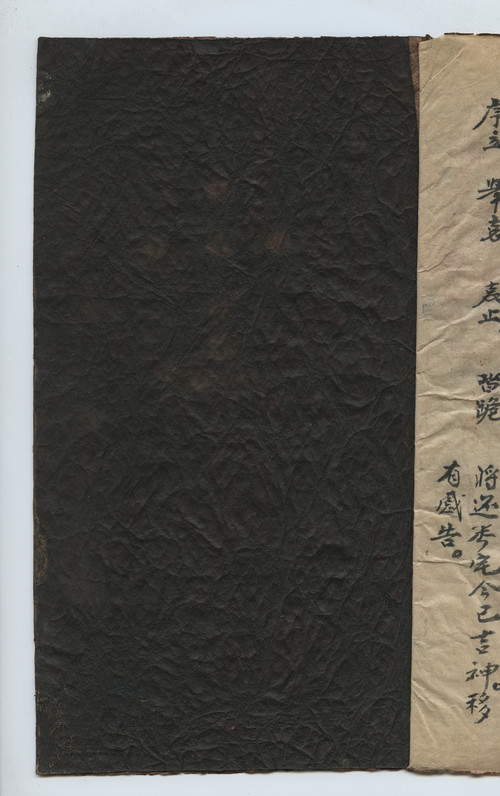 序立 舉哀 哀止 皆跪 將还宅今已吉神。移
有告。